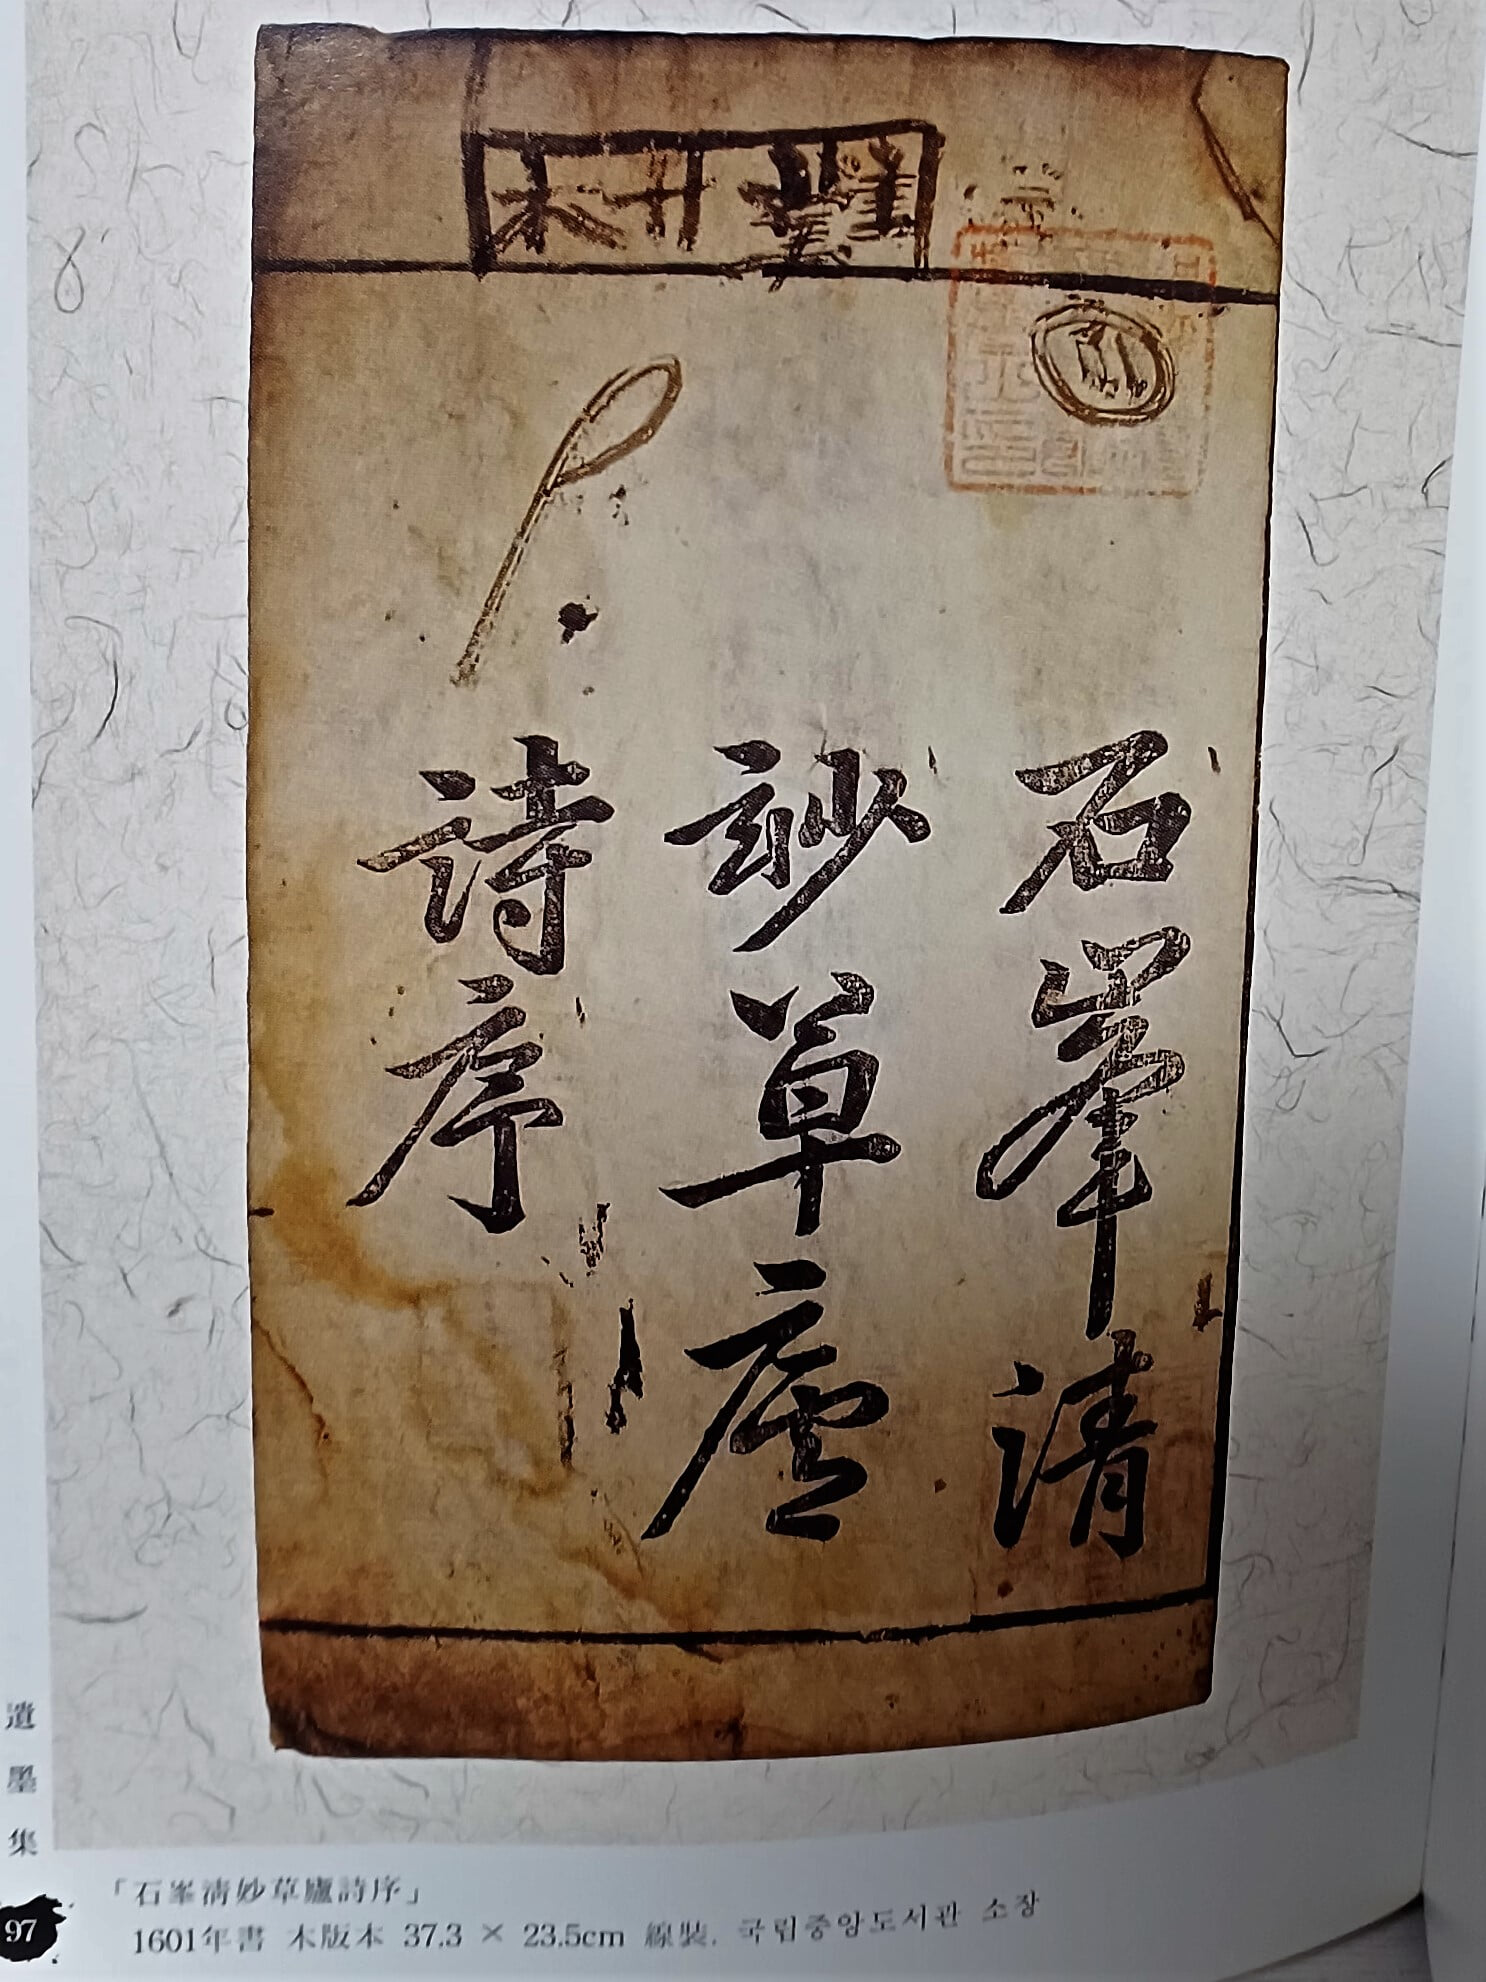 石峯清
玅草廬
詩序
遺墨集
「石峯淸妙草廬詩序」
97
1601年書 木版本 37.3 × 23.5cm 線裝. 국립중앙도서관 소장